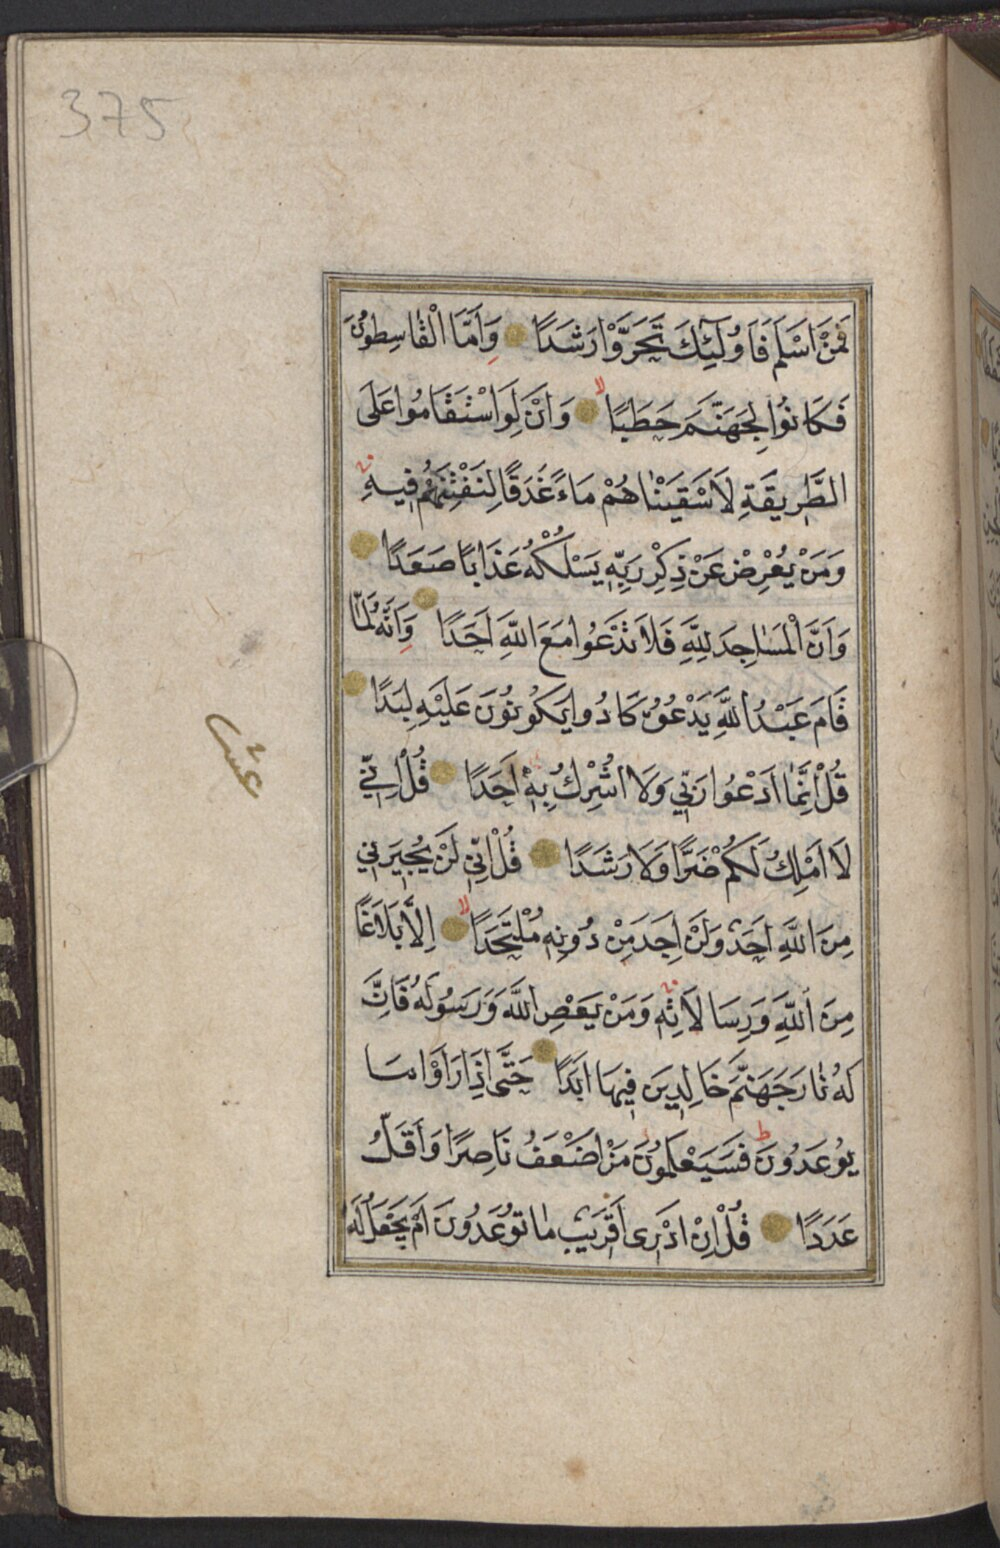 375
فَمَنْ اَسْلَمَ فَاُولٰٓئِكَ تَحَرَّوْا رَشَدًا وَاَمَّا الْقَاسِطُونَ
فَكَانُوا لِجَهَنَّمَ حَطَبًا وَاَنْ لَوِ اسْتَقَامُوا عَلَى
الطَّرِيقَةِ لَاَسْقَيْنَاهُمْ مَاءً غَدَقًا لِنَفْتِنَهُمْ فِيهِ
وَمَنْ يُعْرِضْ عَنْ ذِكْرِ رَبِّهِ يَسْلُكْهُ عَذَابًا صَعَدًا
وَاَنَّ الْمَسَاجِدَ لِلّٰهِ فَلَا تَدْعُوا مَعَ اللّٰهِ اَحَدًا وَاَنَّهُ لَمَّا
قَامَ عَبْدُ اللّٰهِ يَدْعُوهُ كَادُوا يَكُونُونَ عَلَيْهِ لِبَدًا
قُلْ اِنَّمَا اَدْعُوا رَبِّي وَلَا اُشْرِكُ بِهِ اَحَدًا قُلْ اِنِّي
لَا اَمْلِكُ لَكُمْ ضَرًّا وَلَا رَشَدًا قُلْ اِنِّي لَنْ يُجِيرَنِي
مِنَ اللّٰهِ اَحَدٌ وَلَنْ اَجِدَ مِنْ دُونِهِ مُلْتَحَدًا اِلَّا بَلَاغًا
مِنَ اللّٰهِ وَرِسَالَاتِهِ وَمَنْ يَعْصِ اللّٰهَ وَرَسُولَهُ فَاِنَّ
لَهُ نَارَ جَهَنَّمَ خَالِدِينَ فِيهَا اَبَدًا حَتَّى اِذَا رَاَوْا مَا
يُوعَدُونَ فَسَيَعْلَمُونَ مَنْ اَضْعَفُ نَاصِرًا وَاَقَلُّ
عَدَدًا قُلْ اِنْ اَدْرِى اَقَرِيبٌ مَا تُوعَدُونَ اَمْ يَجْعَلُ لَهُ
عشر